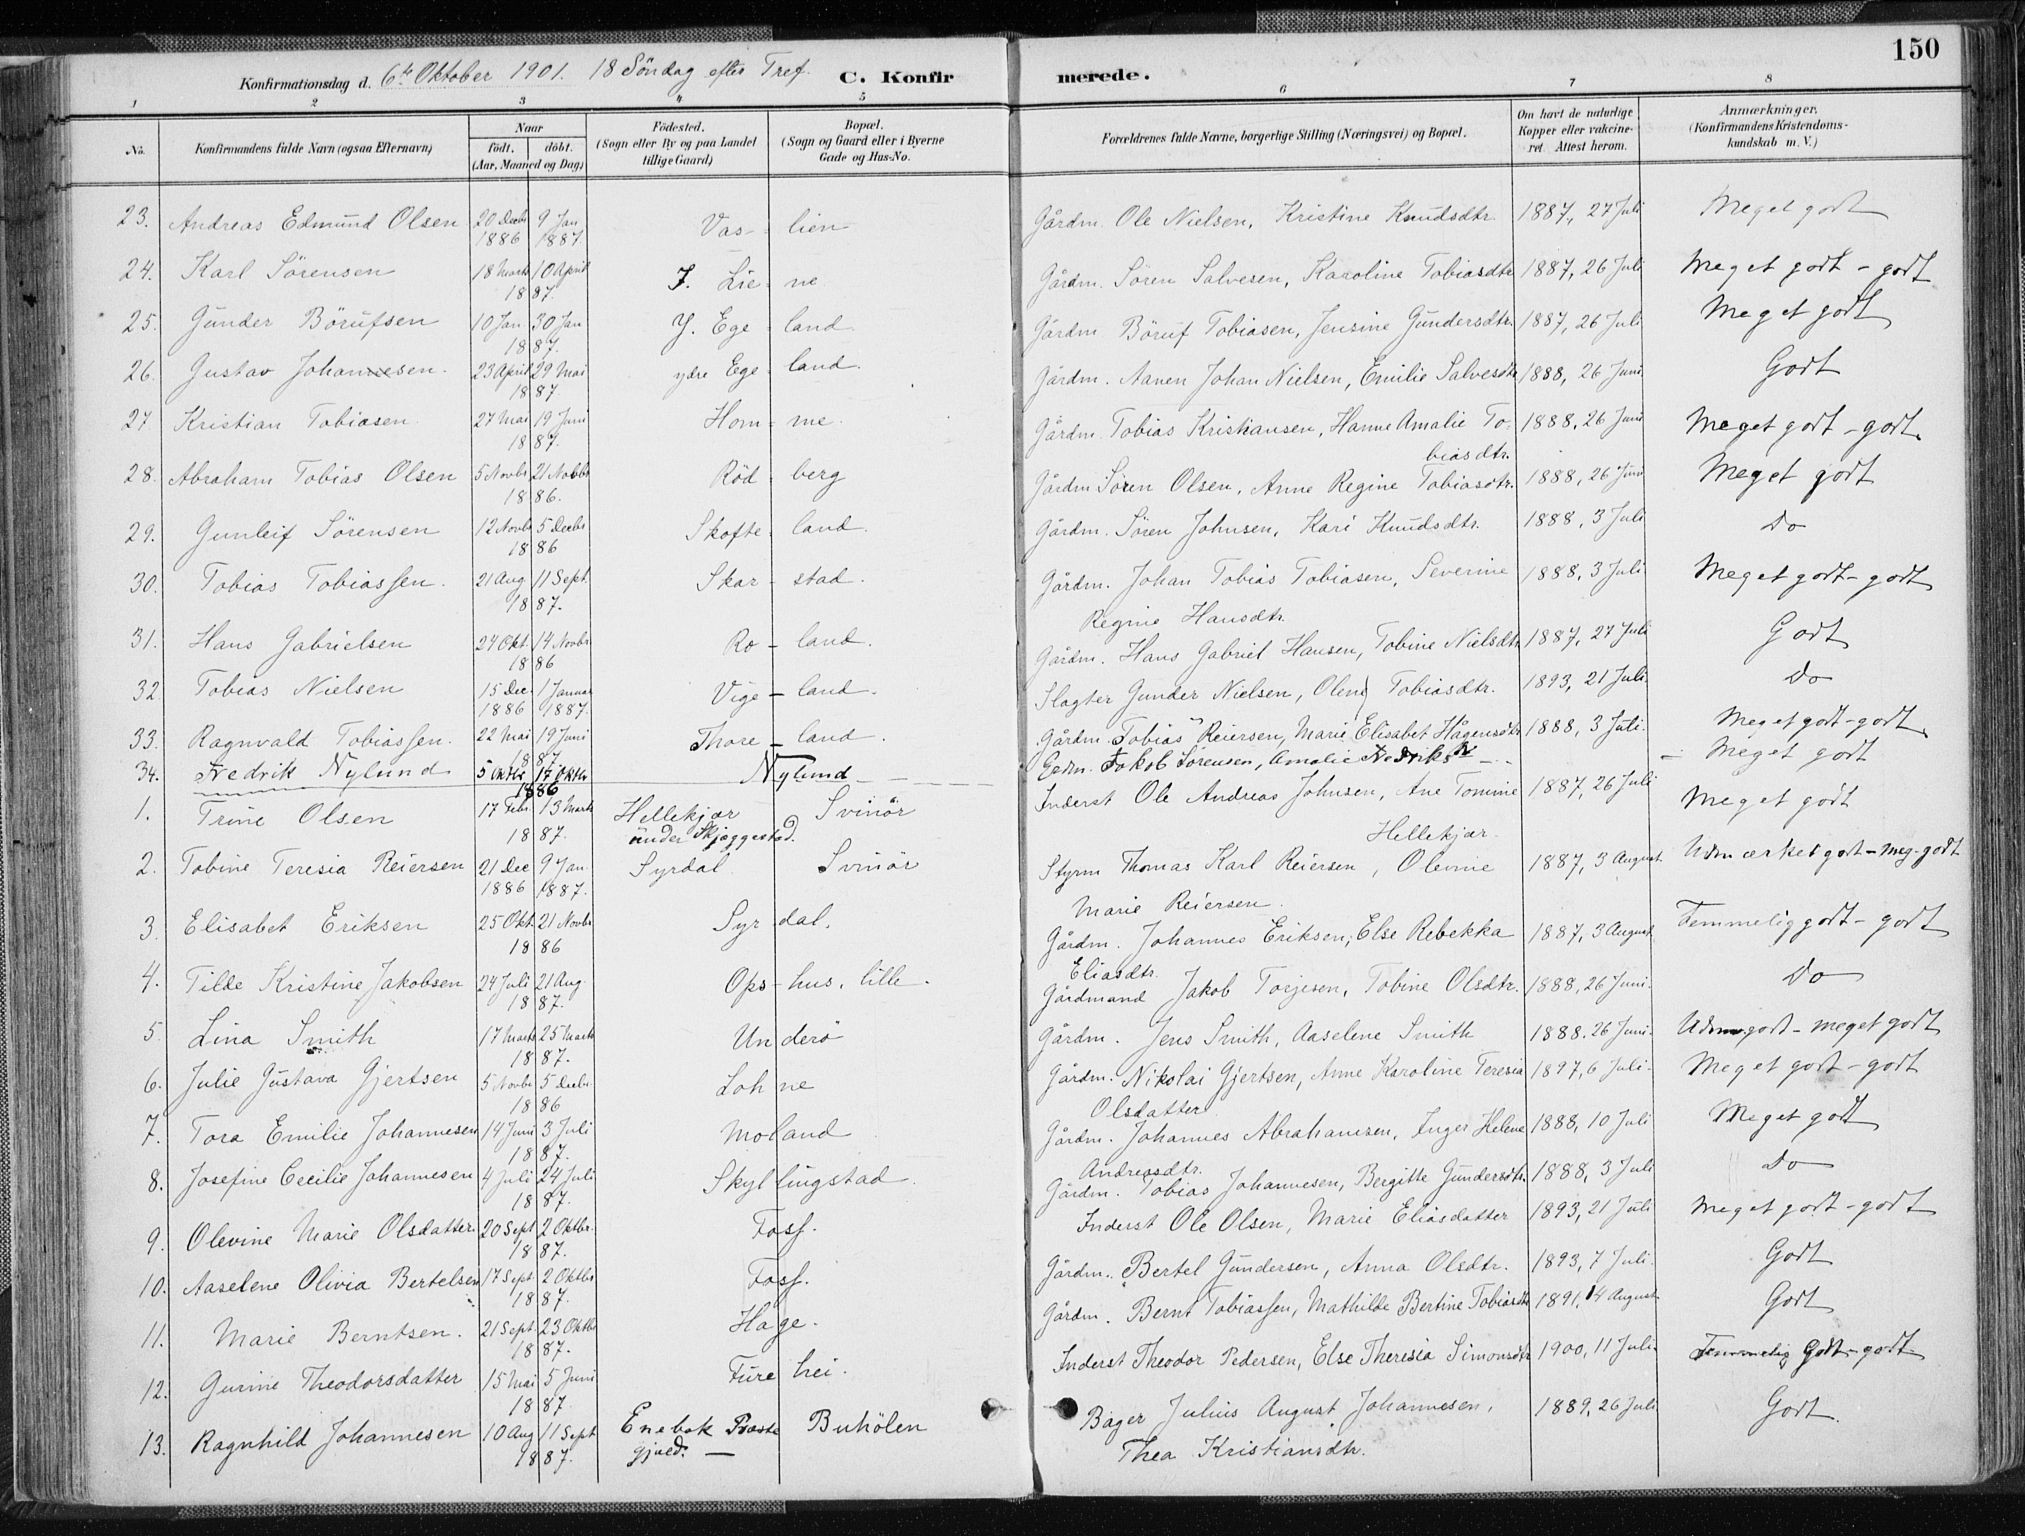 150
Konfirmationsdag d. 6te Oktober 1901. 18 Söndag efter Tref. C. Konfirmerede.
1 2 3 4 5 6 7 8
No. Konfirmandens fulde Navn (ogsaa Efternavn) Naar födt. döbt. (Aar, Maaned og Dag) Födested. (Sogn eller By og paa Landet tillige Gaard) Bopæl. (Sogn og Gaard eller i Byerne Gade og Hus-No. Forældrenes fulde Navne, borgerlige Stilling (Næringsvei) og Bopæl. Om havt de naturlige Kopper eller vakcineret. Attest herom. Anmærkninger. (Konfirmandens Kristendomskundskab m. V.)
23. Andreas Edmund Olsen 20 Decbr 1886 9 Jan 1887 Vas-lien Gårdm. Ole Nielsen, Kristine Knudsdtr. 1887, 27 Juli Meget godt
24. Karl Sörensen 18 Marts 10 April 1887. I. Lie-ne Gårdm. Sören Salvesen, Karoline Tobiasdtr 1887, 26 Juli Meget godt-godt
25. Gunder Börufsen 10 Jan 30 Jan 1887. Y. Ege-land Gårdm Böruf Tobiasen, Jensine Gundersdtr. 1887, 26 Juli Meget godt
26. Gustav Johannesen. 23 April 29 Mai 1887. ydre Ege-land. Gårdm. Aanen Johan Nielsen, Emilie Salvesdtr 1888, 26 Juni. Godt
27 Kristian Tobiasen 27 Mai 19 Juni 1887. Hom-me. Gårdm. Tobias Kristiansen, Hanne Amalie Tobiasdtr. 1888, 26 Juni Meget godt-godt
28. Abraham Tobias Olsen 5 Novbr 21 Novbr 1886. Röd-berg Gårdm Sören Olsen, Anne Regine Tobiasdtr. 1888, 26 Juni Meget godt
29. Gunleif Sörensen 12 Novbr 5 Decbr 1886 Skofte-land. Gårdm. Sören Johnsen, Kari Knudsdtr. 1888, 3 Juli do
30. Tobias Tobiassen. 21 Aug 11 Sept. 1887. Skar-stad. Gårdm. Johan Tobias Tobiasen, Severine Regine Hansdtr. 1888, 3 Juli Meget godt-godt
31. Hans Gabrielsen 24 Okt. 14 Novbr. 1886 Ro-land. Gårdm. Hans Gabriel Hansen, Tobine Nielsdtr 1887, 27 Juli Godt
32 Tobias Nielsen 15 Dec. 1886 1 Januar 1887. Vige-land. Slagter Gunder Nielsen, Olene Tobiasdtr. 1893, 21 Juli. do
33. Ragnvald Tobiassen. 22 Mai 19 Juni 1887 Thore-land. Gårdm. Tobias Reiersen, Marie Elisabet Hågensdtr 1888, 3 Juli. Meget godt-godt
34. Fredrik Nylund 5 Oktbr 17 Oktbr 1886 Nylund Jakob Sörensen, Amalie Meget godt
1. Trine Olsen 17 Febr. 13 Marts 1887. Hellekjær under Skjæggestad. Svinör Inderst Ole Andreas Johnsen, Ane Tomine Hellekjær. 1887, 26 Juli Meget godt
2. Tobine Teresia Reiersen 21 Dec 1886 9 Jan. 1887. Syrdal. Svinör Styrm Thomas Karl Reiersen, Olevine Marie Reiersen. 1887, 3 August Udmærket godt-meg. godt
3. Elisabet Eriksen 25 Okt. 21 Novbr 1886 Syrdal. Gårdm. Johannes Eriksen, Else Rebekka Eliasdtr. 1887, 3 August Temmelig godt-godt
4. Tilde Kristine Jakobsen 24 Juli 21 Aug. 1887. Ops-hus, lille. Gårdmand Jakob Torjesen, Tobine Olsdtr. 1888, 26 Juni. do
5. Lina Smith 17 Marts 25 Marts 1887. Underö Gårdm. Jens Smith, Aaselene Smith 1888. 26 Juni. Udm. godt-meget godt
6. Julie Gustava Gjertsen 5 Novbr 5 Decbr. 1886 Lohne Gårdm. Nikolai Gjertsen, Anne Karoline Teresia Olsdatter 1897, 6 Juli. Meget godt-godt
7. Tora Emilie Johannesen 14 Juni 3 Juli 1887. Moland Gårdm. Johannes Abrahamsen, Inger Helene Andreasdtr. 1888, 10 Juli Meget godt
8. Josefine Cecilie Johannesen 4 Juli 24 Juli 1887. Skyllingstad. Gårdm. Tobias Johannesen, Bergitte Gundersdtr. 1888, 3 Juli do
9. Olevine Marie Olsdatter. 20 Sept 2 Oktbr. 1887. Foss. Inderst Ole Olsen, Marie Eliasdatter 1893, 21 Juli Meget godt-godt
10. Aaselene Olivia Bertelsen 17 Sept 2 Oktbr 1887. Foss. Gårdm. Bertel Gundersen, Anna Olsdtr. 1893, 7 Juli. Godt
11. Marie Berntsen. 21 Sept. 23 Oktbr 1887. Hage. Gårdm. Bernt Tobiassen, Mathilde Bertine Tobiasdtr 1891, 14 August Godt
12. Gurine Theodorsdatter 15 Mai 5 Juni 1887 Furehei. Inderst Theodor Pedersen, Else Theresia Simonsdtr 1900, 11 Juli. Temmelig Godt-godt
13. Ragnhild Johannesen 10 Aug 11 Sept 1887. Enebak Præstegjæld. Buhölen Bager Julius August Johannesen, Thea Kristiansdtr. 1889, 26 Juli Godt.